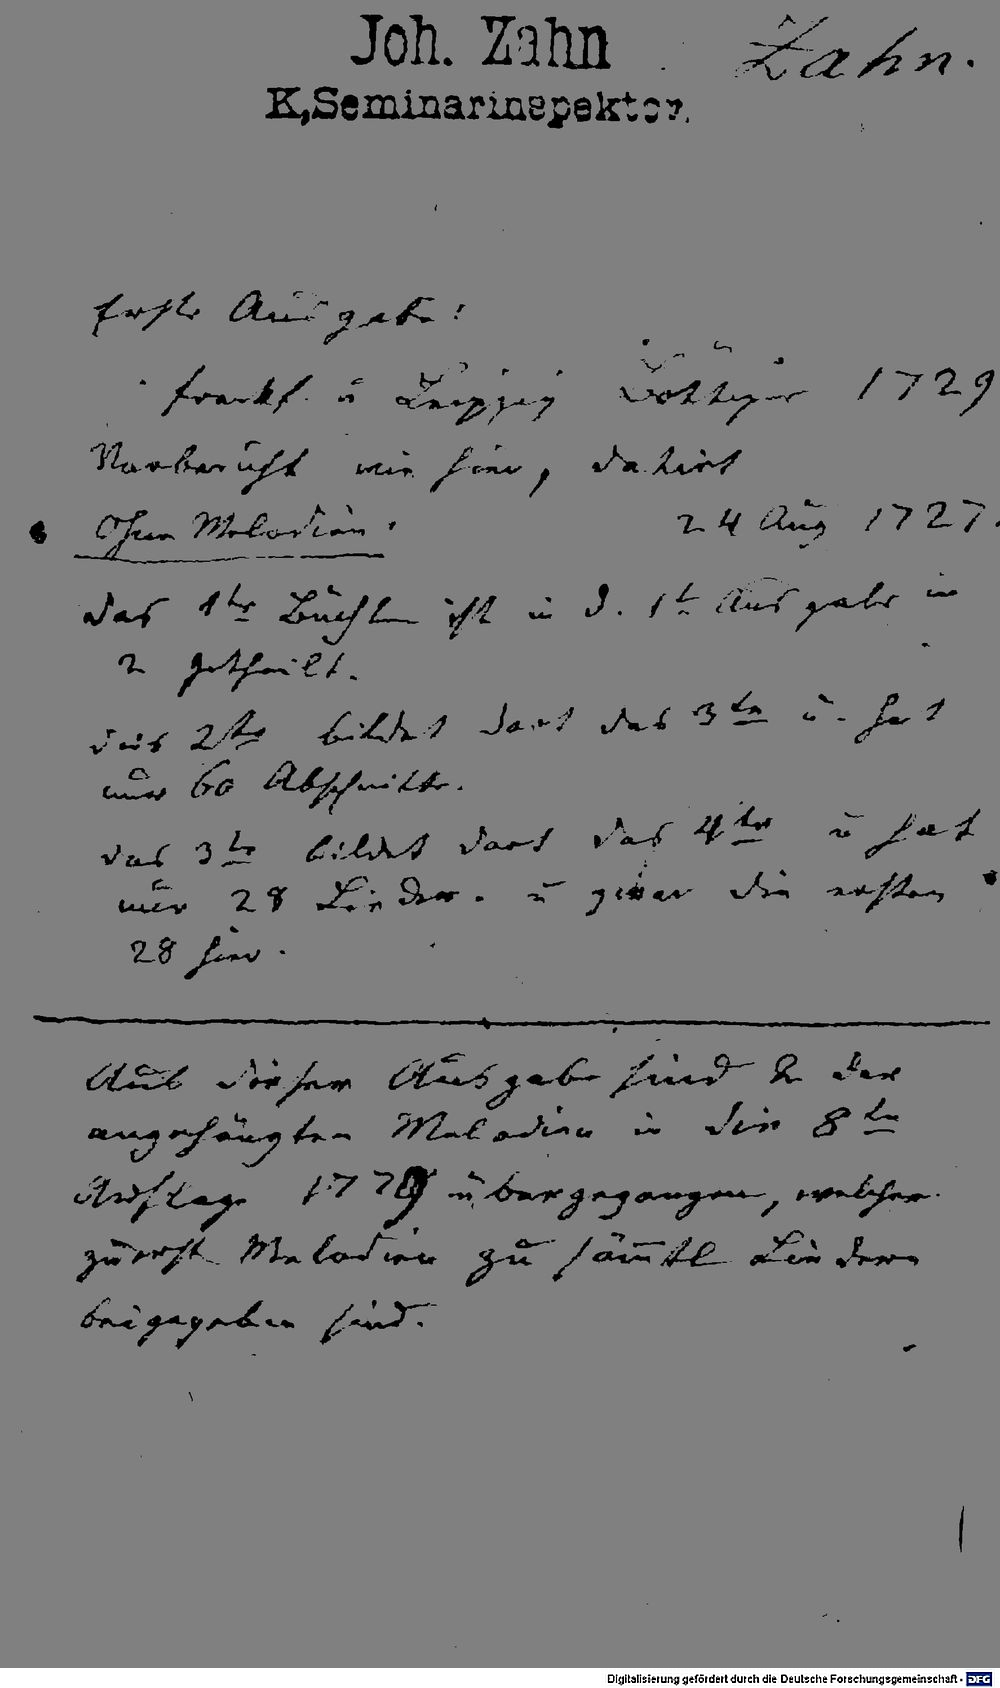 Joh. Zahn
Zahn.
K. Seminarinspektor.
Erste Ausgabe:
Frankf. u Leipzig 1729
Vorbericht wie hier, datirt
Ohne Melodien. 24 Aug 1727.
Das 1te Büchlein ist in d. 1t Ausgabe in
2 getheilt.
das 2te bildet dort das 3te u. hat
nur 60 Abschnitte.
das 3te bildet dort das 4te u hat
nur 28 Lieder. u zwar die ersten
28 hier.
Aus dieser Ausgabe sind 2 der
angehängten Melodien in die 8te
Auflage übergegangen, welcher
zuerst Melodien zu sämtl Liedern
beigegeben sind.
Digitalisierung gefördert durch die Deutsche Forschungsgemeinschaft - DFG